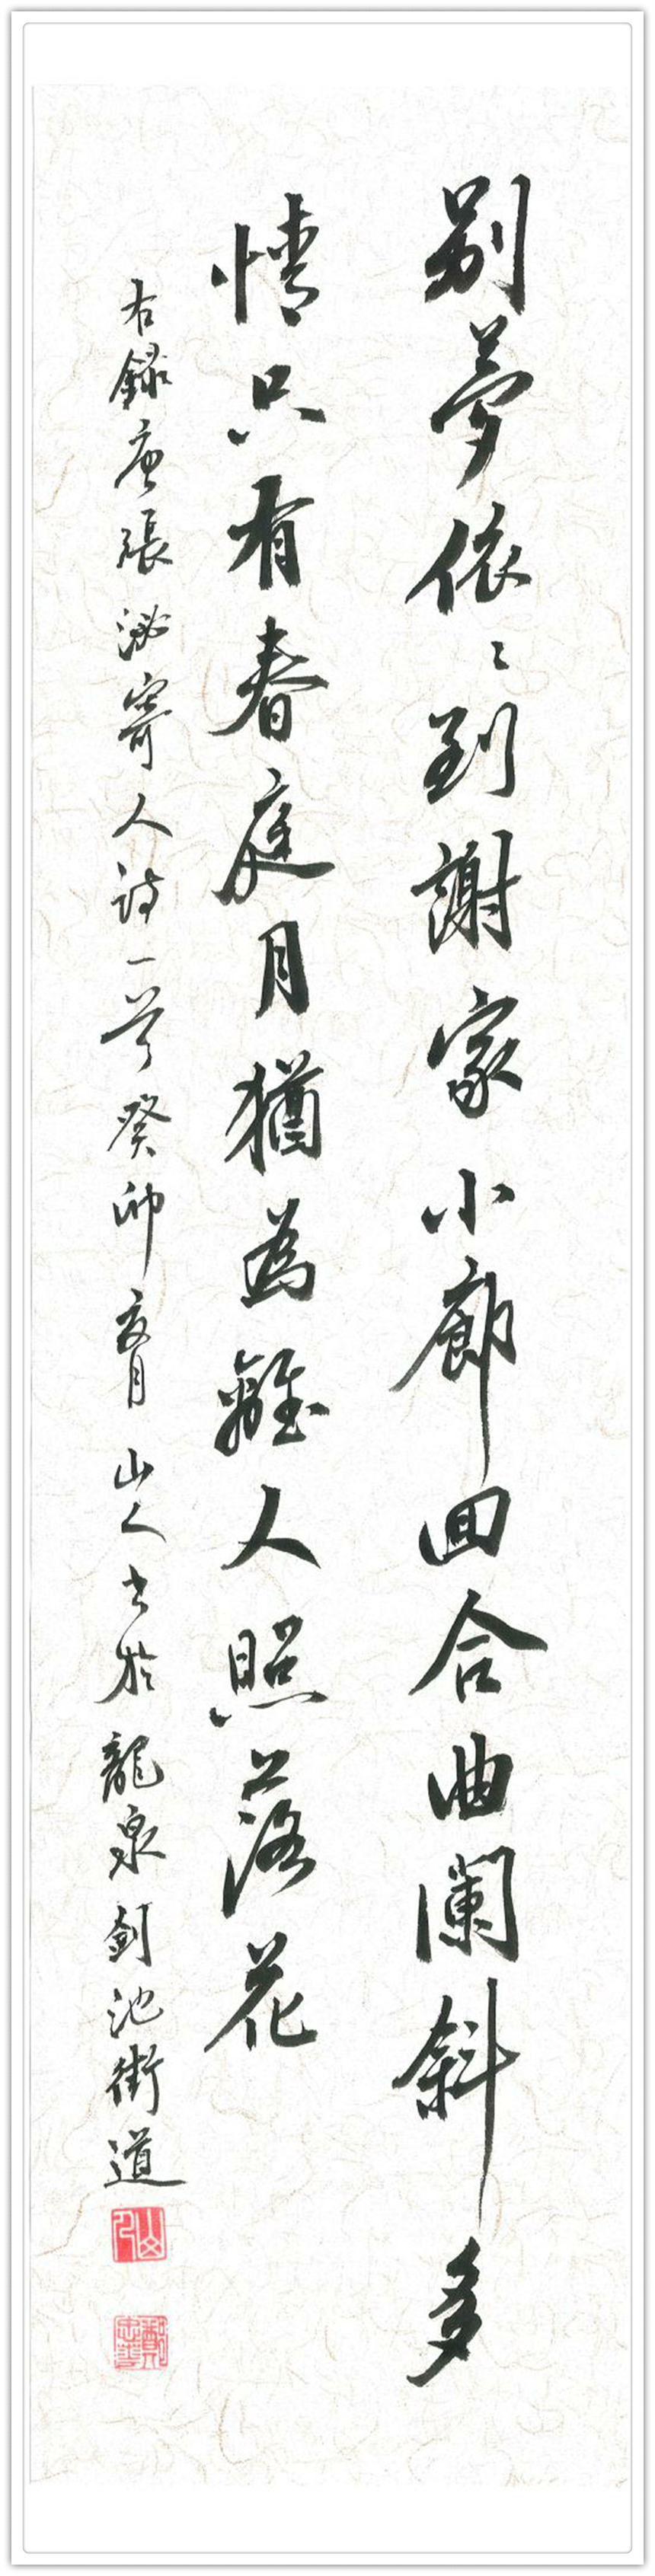 别夢依〻到謝家小廊回合曲闌斜多
情只有春庭月猶為離人照落花
右錄唐張泌寄人詩一首癸卯夏月山人書於龍泉劍池街道